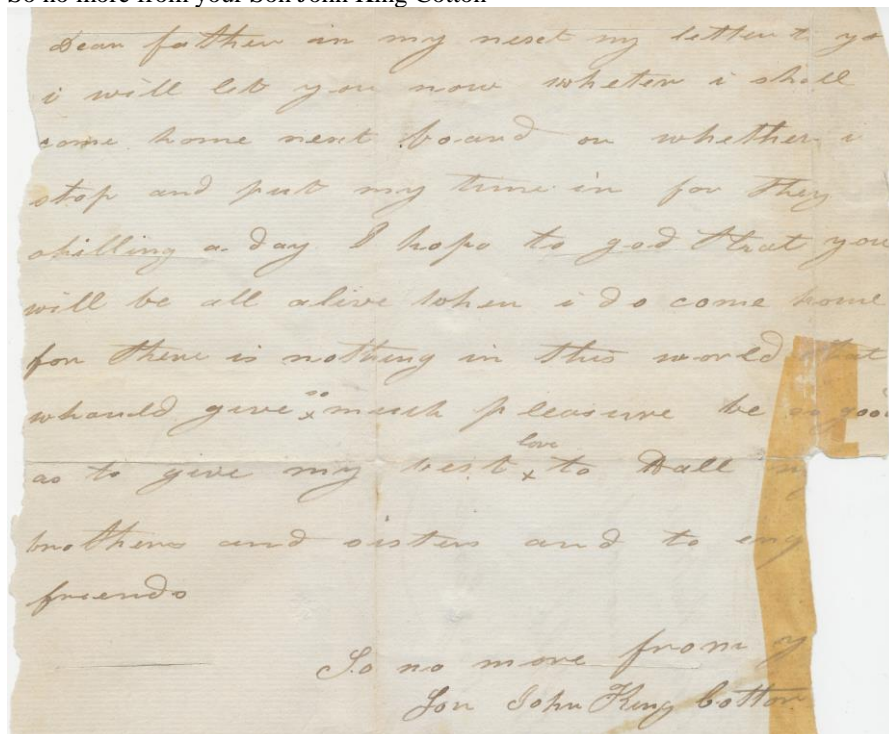 So no more from your Son John King Cotton
Dear father in my nesct my letter to yo
i will let you now wheter i shall
come home nesct board or whether i
stop and put my time in for they
shilling a day I hope to god that you
will be all alive when i do come home
for there is nothing in this world that
whould give so x much pleasure be as good
as to give my best love x to all my
brothers and sisters and to eny
friends
So no more from y
Son John King Cotton